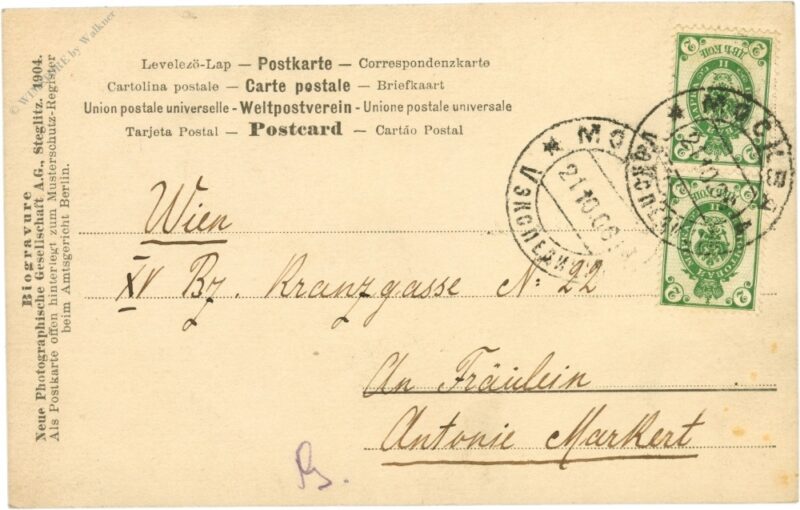 Levelezö-Lap — Postkarte — Correspondenzkarte
Cartolina postale — Carte postale — Briefkaart
Union postale universelle - Weltpostverein - Unione postale universale
Tarjeta Postal — Postcard — Cartáo Postal
Biogravure
Neue Photographische Gesellschaft A.G., Steglitz. 1904.
Als Postkarte offen hinterlegt zum Musterschutz-Register
beim Amtsgericht Berlin.
Wien
XV Bz. Kranzgasse No: 22
An Fräulein
Antonie Markert
2 ДВѢ КОП. 2
МОСКВА
21.10.06